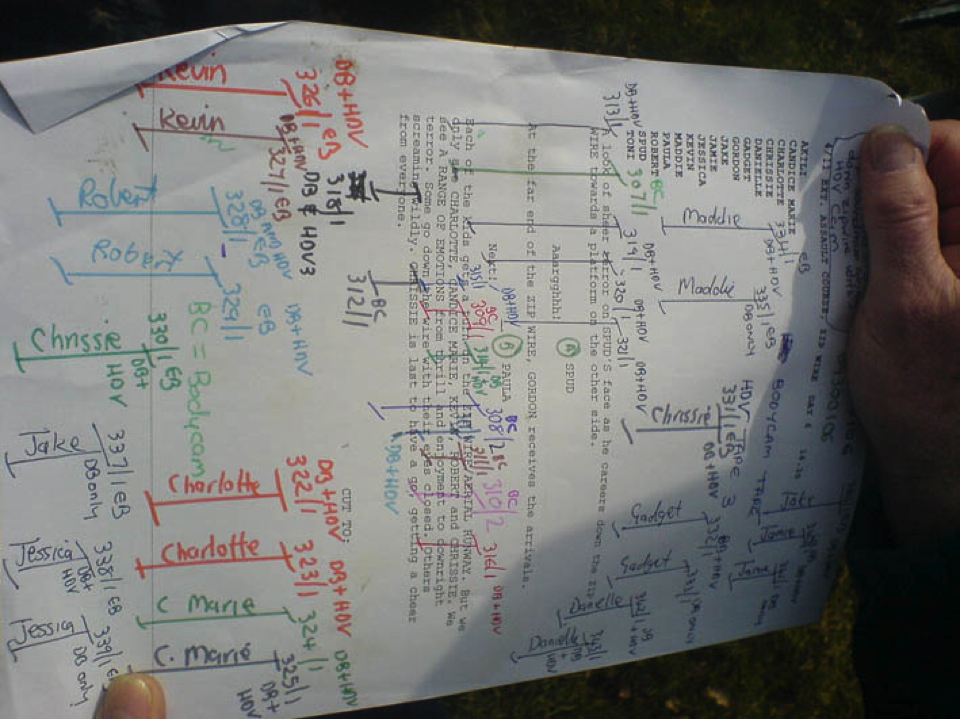 47 EXT. ASSAULT COURSE, ZIP WIRE DAY 6
AKIII
CANDICE MARIE
CHARLOTTE
CHRISSIE
DANIELLE
GADGET
GORDON
JAKE
JAMIE
JESSICA
KEVIN
MADDIE
PAULA
ROBERT
SPUD
TONI
A look of sheer terror on SPUD'S face as he careers down the ZIP
WIRE towards a platform on the other side.
SPUD
Aaargghhh!
At the far end of the ZIP WIRE, GORDON receives the arrivals.
PAULA
Next!
Each of the kids gets a turn on the ZIP WIRE/AERIAL RUNWAY. But we
only see CHARLOTTE, CANDICE MARIE, KEVIN, ROBERT and CHRISSIE. We
see A RANGE OF EMOTIONS from thrill and enjoyment to downright
terror. Some go down the wire with their eyes closed. Others
screaming wildly. CHRISSIE is last to have a go, getting a cheer
from everyone.
CUT TO:
HDV TAPE 3
BODYCAM TAPE
334/1 EB
DB+HDV
Maddie
335/1 EB
DB ONLY
Maddie
331/1 EB
DB+HDV
Chrissie
332/1
DB+HDV
Gadget
333/1
DB ONLY
Gadget
Jake
Jamie
Jamie
Danielle
343/1
DB+HDV
Danielle
DB+HDV
313/1
BC
307/1
DB+HDV
319/1
DB+HDV
320/1
DB+HDV
321/1
DB+HDV
315/1
BC
309/1
DB+HDV
314/1
BC
308/2
BC
311/1
BC
310/2
DB+HDV
316/1
DB+HDV
BC
312/1
DB & HDV3
318/1
DB+HDV
326/1 EB
Kevin
DB+HDV
327/1 EB
Kevin
DB AND HDV
328/1 EB
Robert
DB+HDV
329/1 EB
Robert
330/1 EB
DB+HDV
Chrissie
BC = Bodycam
DB+HDV
322/1
Charlotte
DB+HDV
323/1
Charlotte
DB+HDV
324/1
C Marie
325/1
DB+HDV
C. Marie
337/1 EB
DB only
Jake
338/1 EB
DB+HDV
Jessica
339/1 EB
DB only!
Jessica